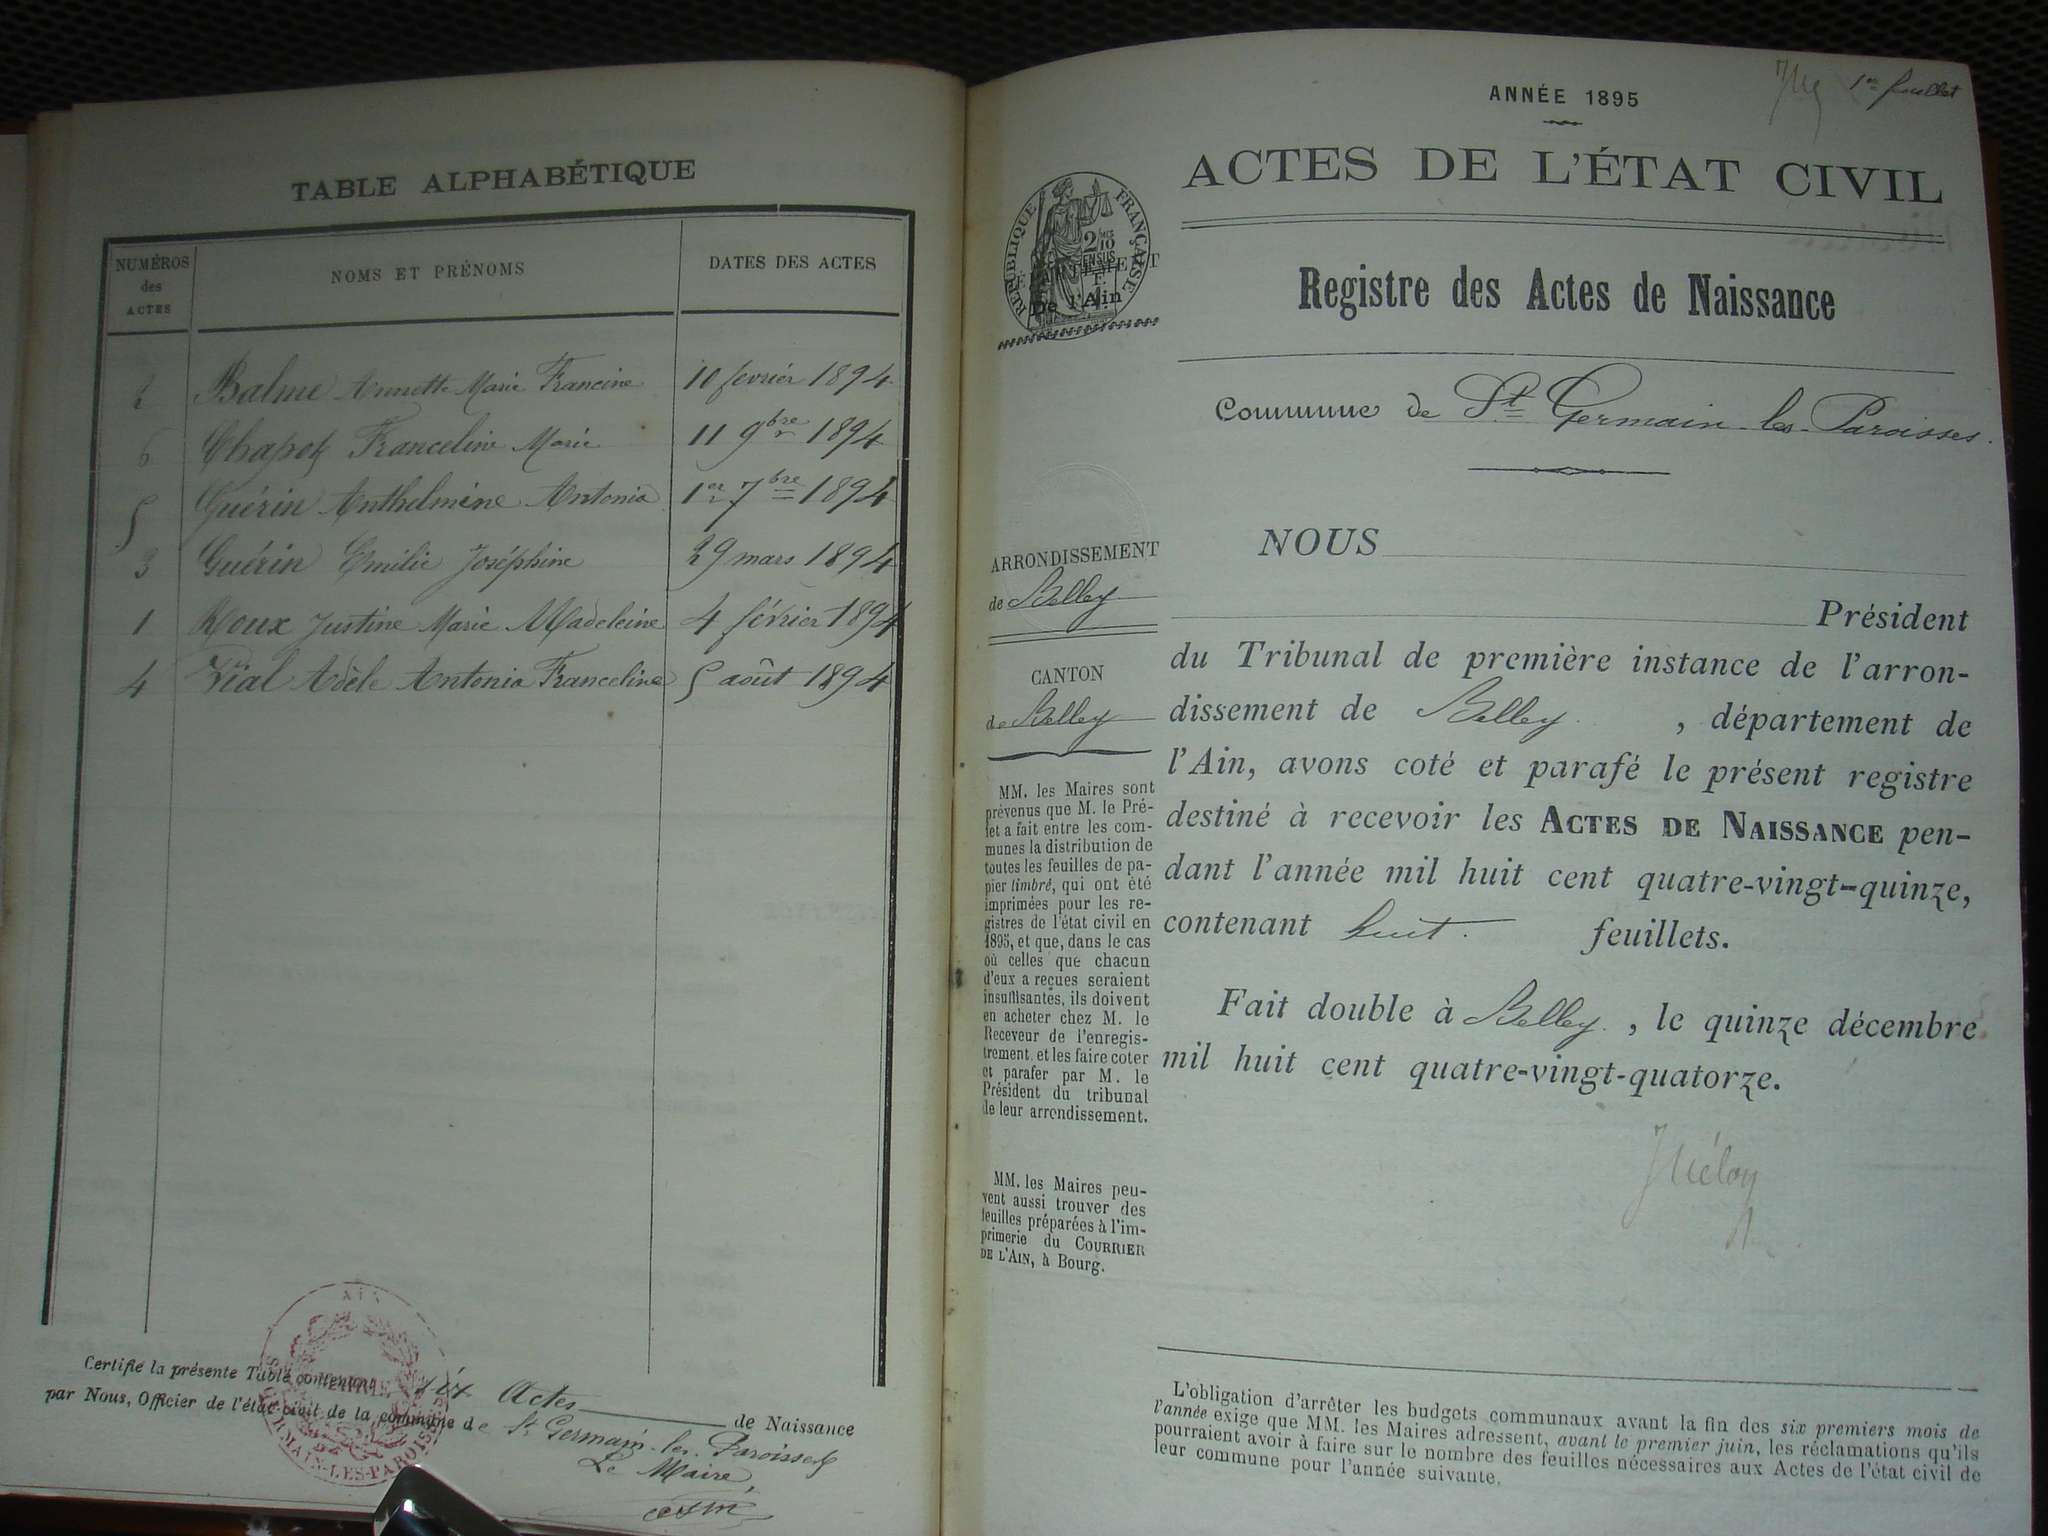 TABLE ALPHABÉTIQUE
NUMÉROS des ACTES
NOMS ET PRÉNOMS
DATES DES ACTES
2 Balme Annette Marie Francine 10 fevrier 1894
6 Chapot Franceline Marie 11 9bre 1894
5 Guérin Anthelmine Antonia 1er 7bre 1894
3 Guérin Emilie Joséphine 29 mars 1894
1 Roux Justine Marie Madeleine 4 février 1894
4 Vial Adèle Antonia Franceline 5 août 1894
Certifié la présente Table contenant six Actes de Naissance
par Nous, Officier de l'état civil de la commune de St Germain-les-Paroisses
Le Maire
AIN
MAIRIE
GERMAIN-LES-PAROISSES
1er feuillet
ANNÉE 1895
ACTES DE L'ÉTAT CIVIL
RÉPUBLIQUE FRANÇAISE
2/10
EN SUS
DÉPARTEMENT
De l'Ain
Registre des Actes de Naissance
Commune de St Germain-les-Paroisses.
ARRONDISSEMENT
de Belley
CANTON
de Belley
MM. les Maires sont
prévenus que M. le Pré-
fet a fait entre les com-
munes la distribution de
toutes les feuilles de pa-
pier timbré, qui ont été
imprimées pour les re-
gistres de l'état civil en
1895, et que, dans le cas
où celles que chacun
d'eux a reçues seraient
insuffisantes, ils doivent
en acheter chez M. le
Receveur de l'enregis-
trement, et les faire coter
et parafer par M. le
Président du tribunal
de leur arrondissement.
MM. les Maires peu-
vent aussi trouver des
feuilles préparées à l'im-
primerie du COURRIER
DE L'AIN, à Bourg.
NOUS
Président
du Tribunal de première instance de l'arron-
dissement de Belley, département de
l'Ain, avons coté et parafé le présent registre
destiné à recevoir les ACTES DE NAISSANCE pen-
dant l'année mil huit cent quatre-vingt-quinze,
contenant huit feuillets.
Fait double à Belley, le quinze décembre
mil huit cent quatre-vingt-quatorze.
L'obligation d'arrêter les budgets communaux avant la fin des six premiers mois de
l'année exige que MM. les Maires adressent, avant le premier juin, les réclamations qu'ils
pourraient avoir à faire sur le nombre des feuilles nécessaires aux Actes de l'état civil de
leur commune pour l'année suivante.